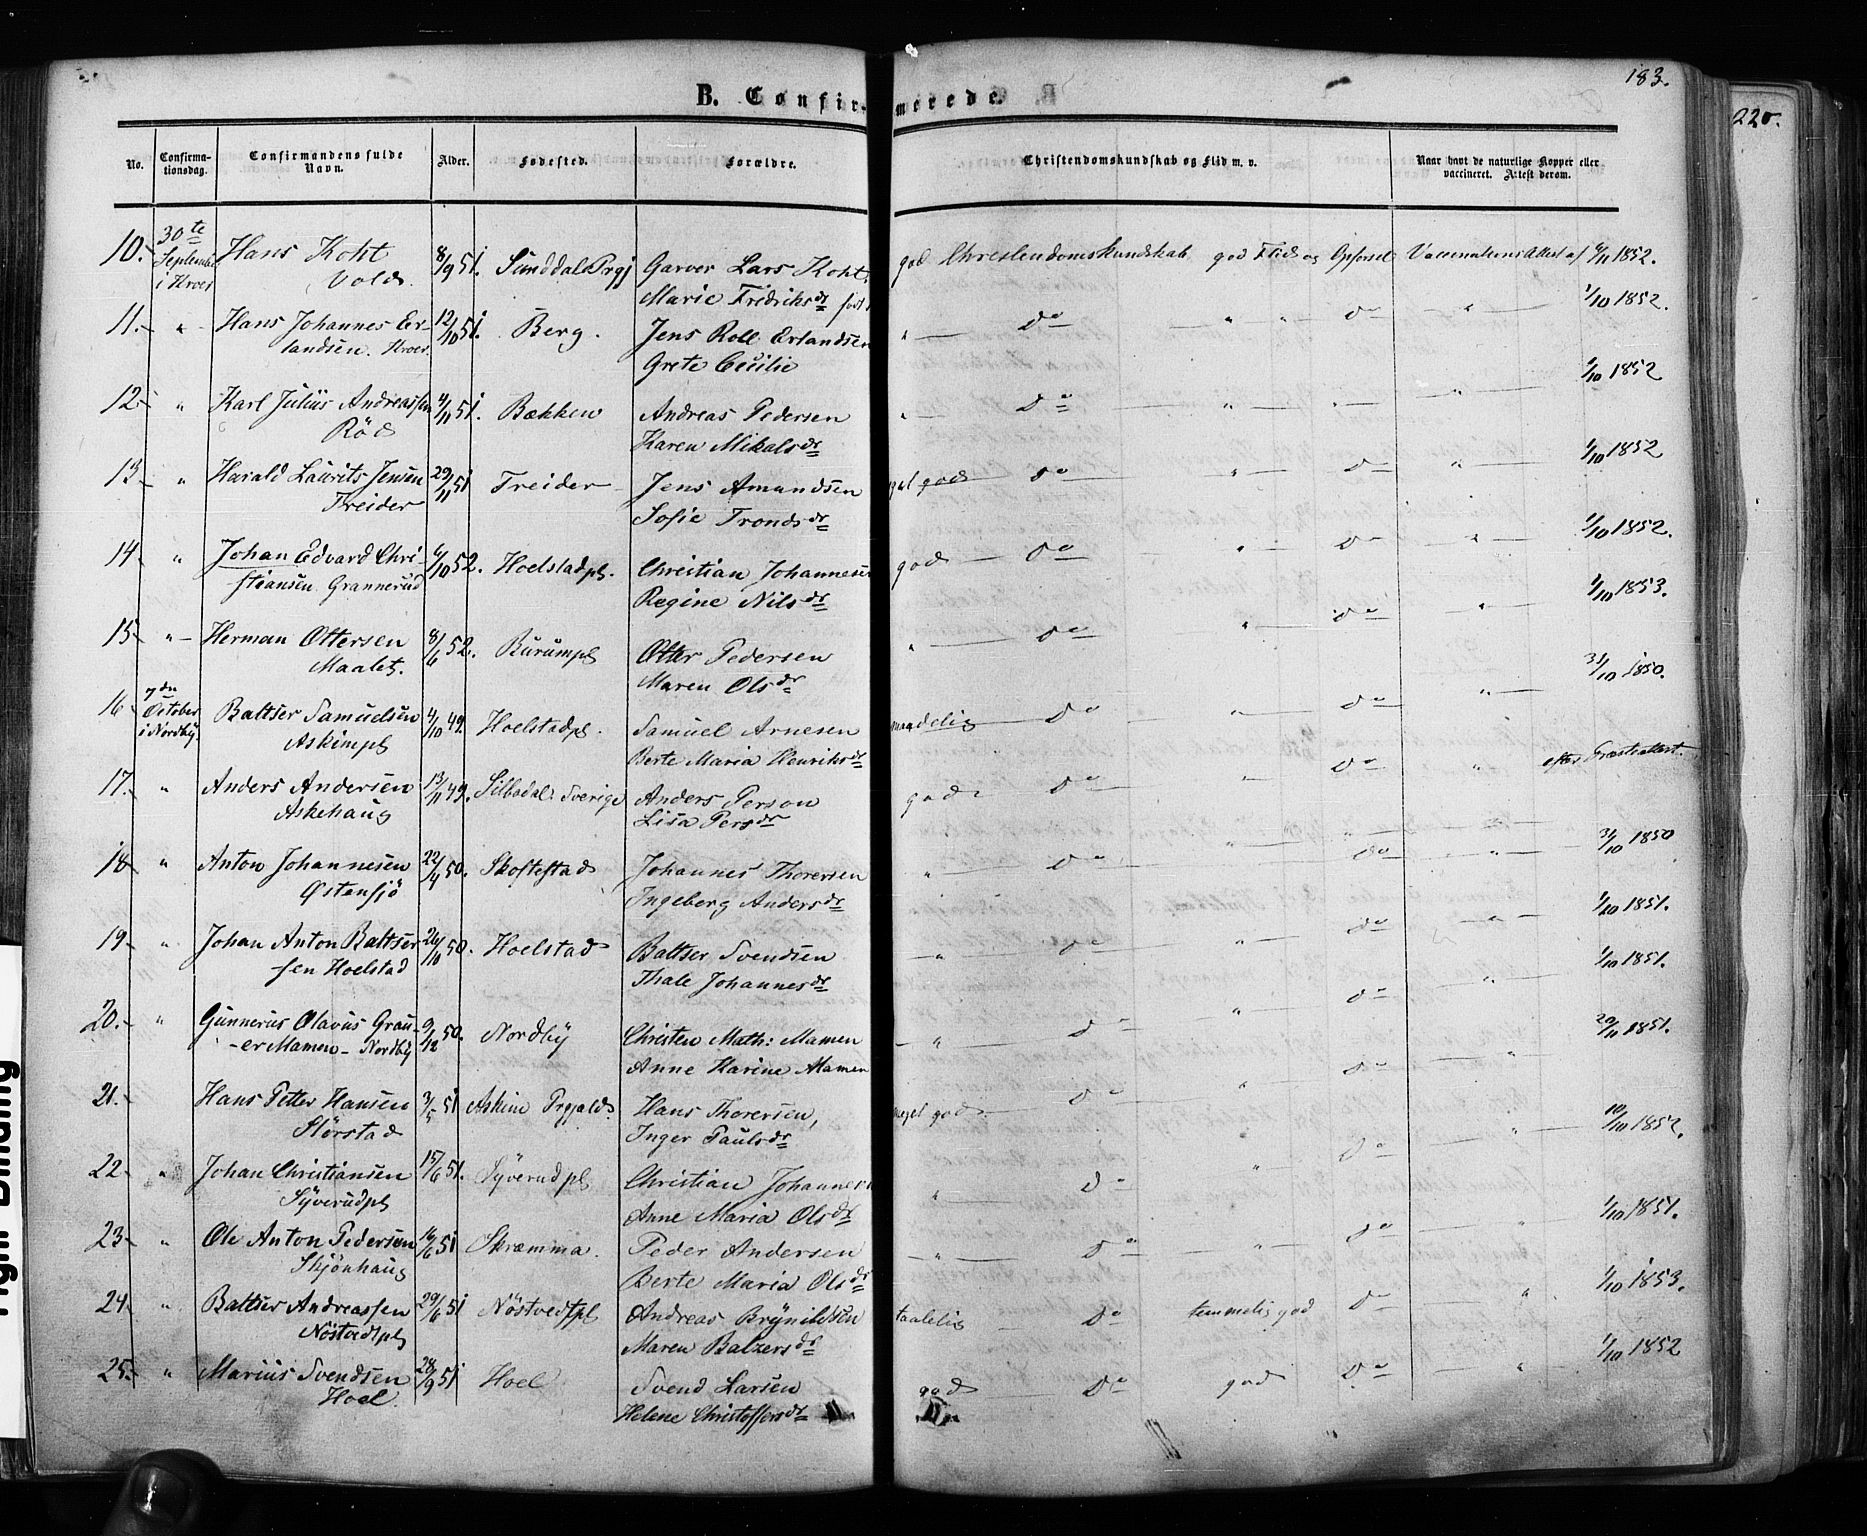 183.
220.
B. Confirmerede.
No.
Confirmationsdag.
Confirmandens fulde Navn.
Alder.
Fødested.
Forældre.
Christendomskundskab og Flid m. v.
Naar havt de naturlige Kopper eller vaccineret. Attest derom.
10. 30te Hans Koht 8/9 51. Sunddals Prgj Garver Lars Koht god Christendomskundskab god Flid og Opførsel 1852.
i Kroer Vold. Marie Fredriksdr
11. " Hans Johannes Er- 12/10 51. Berg. Jens Roll Erlandsen " Do " " Do " 1/10 1852.
landsen. Kroer. Grete Cecilie
12. " Karl Julius Andreassen 4/11 51. Bækken Andreas Pedersen " Do " " " 1/10 1852
Rød Karen Mikalsdr
13 " Harald Laurits Jensen 29/11 51 Treider Jens Amundsen god Do " Do " 1/10 1852
Treider Sofie Trondsdr
14. " Johan Edvard Chri- 6/10 52. Hoelstadpl. Christian Johannesen god Do " Do " 1/10 1852.
stiansen Grannerud Regine Nilsdr
15. " Herman Ottersen 8/6 52. Burumpl Otter Pedersen " Do " Do " 1/10 1853.
Maalet. Maren Olsdr
16 7de October i Nordby. Baltser Samuelsen 4/10 49. Hoelstadpl. Samuel Arnesen maadelig Do " Do " 31/10 1850.
Askimpl Berte Maria Henriksdr
17. " Anders Andersen 13/11 49. Silbodal Sverige Anders Person god Do " Do " efter Præsteattest.
Askehaug Lisa Persdr
18 " Anton Johannesen 22/4 50. Skoftestad Johannes Thorersen " Do " Do " 31/10 1850
Østensjö Ingeborg Andersdr
19 " Johan Anton Baltser 26/10 50. Hoelstad Baltser Svendsen " Do " Do " 1/10 1851.
sen Hoelstad Thale Johannesdr
20. " Gunnerius Olavus Grau- 9/12 50. Nordby Christen Math: Mamen " Do " Do " 1/10 1851.
-er Mamen - Nordby Anne Karine Mamen
21. " Hans Petter Hansen 3/5 51 Askim Prgjeld. Hans Thorersen, meget god. Do " Do " 20/11 1851.
Störstad Inger Paulsdr
22 " Johan Christiansen 15/6 51. Syverudpl Christian Johannes " Do " Do " 10/10 1852.
Syverudpl Anne Maria Olsdr
23 " Ole Anton Pedersen 16/6 51 Skræmma. Peder Andersen " Do " Do " 1/10 1851.
Skjönhaug Berte Maria Olsdr
24 " Baltser Andreassen 29/6 51 Nöstvedtpl Andreas Brynildsen taalelig Do temmelig god Do " 1/10 1853.
Nöstvedtpl Maren Balzersdr
25. " Marius Svendsen 28/9 51 Hoel Svend Larsen god Do god Do " 1/10 1852
Hoel. Helene Christoffersdr